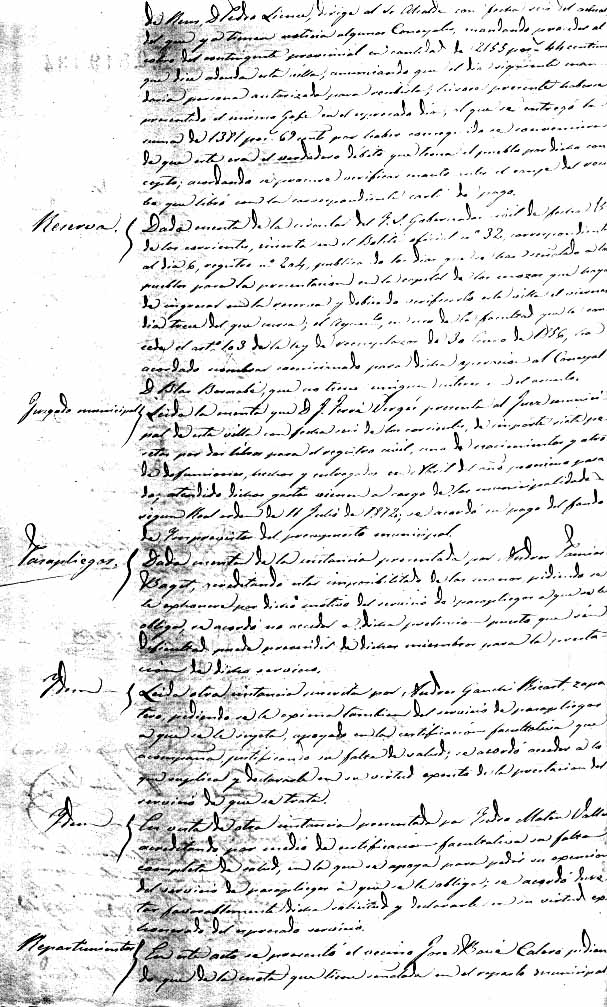 de Reus, D. Pedro Llorca, dirige al Sr. Alcalde con fecha seis del actual
del que ya tienen noticia algunos Concejales, mandando proceder al
cobro del contingente provincial en cantidad de 2153 pts. 46 centimos
que dice adeuda esta villa, anunciando que el dia siguiente man
daria persona autorizada para cobrarla; hizose presente haberse
presentado el mismo Gefe en el espresado dia, al que se entregó la
suma de 1381 pts. 69 cents por haber conseguido se convenciera
de que este era el verdadero debito que tenia el pueblo por dicho con
cepto; acordando se procure verificar cuanto antes el cange del reci
bo que libró con la correspondiente carta de pago.
Reserva. Dada cuenta de la circular del Y. S. Gobernador civil de fecha
de los corrientes, inserta en el Boletin oficial nº 32, correspondiente
al dia 6, registro nº 224, publicando los dias que se han señalado a los
pueblos para la presentacion en la capital de los mozos que hayan
de ingresar en la reserva y debiendo verificarlo esta villa el viernes
dia trece del que cursa; el Ayunto, en uso de la facultad que le con
cede el artº 103 de la ley de reemplazos de 30 Enero de 1856, ha
acordado nombrar comisionado para dicha operacion al Concejal
D. Blas Bernale, que no tiene ningun interes en el asunto.
Juzgado municipal Leida la cuenta que D. J. Ferré Vergés presenta al Juez munici
pal de esta villa con fecha seis de los corrientes, de importe siete pe
setas por dos libros para el registro civil, uno de nacimientos y otro
de defunciones, hechos y entregados en Abril del año proximo pasa
do; atendido dichos gastos vienen a cargo de las municipalidades
segun Real orden de 11 Julio de 1872, se acordó su pago del fondo
de Imprevistos del presupuesto municipal.
Parapliegos. Dada cuenta de la instancia presentada por Andres
Baget, acreditando estar imposibilitado de las manos pidiendo se
le exhonere por dicho motivo del servicio de parapliegos a que se le
obligó, se acordó no acceder a dicha pretencion puesto que sin
dificultad puede prescindir de dichos miembros para la presta
cion de dicho servicio.
Ydem Leida otra instancia suscrita por Andres Ganchi Ricart, zapa
tero, pidiendo se le exima tambien del servicio de parapliegos
a que se le sugeta, apoyado en la certificacion facultativa que
acompaña, justificando su falta de salud; se acordó acceder a lo
que suplica y declararle en su virtud exento de la prestacion del
servicio de que se trata.
Ydem En vista de otra instancia presentada por Pedro Mateu Valls
acreditando por medio de certificacion facultativa su falta
completa de salud, en la que se apoya para pedir su exencion
del servicio de parapliegos a que se le obliga; se acordó
tar favorablemente dicha solicitud y declararle en su virtud ex
honerado del espresado servicio.
Repartimiento En este acto se presentó el vecino José Maria Calero pidien
do que de la cuota que tiene señalada en el reparto municipal